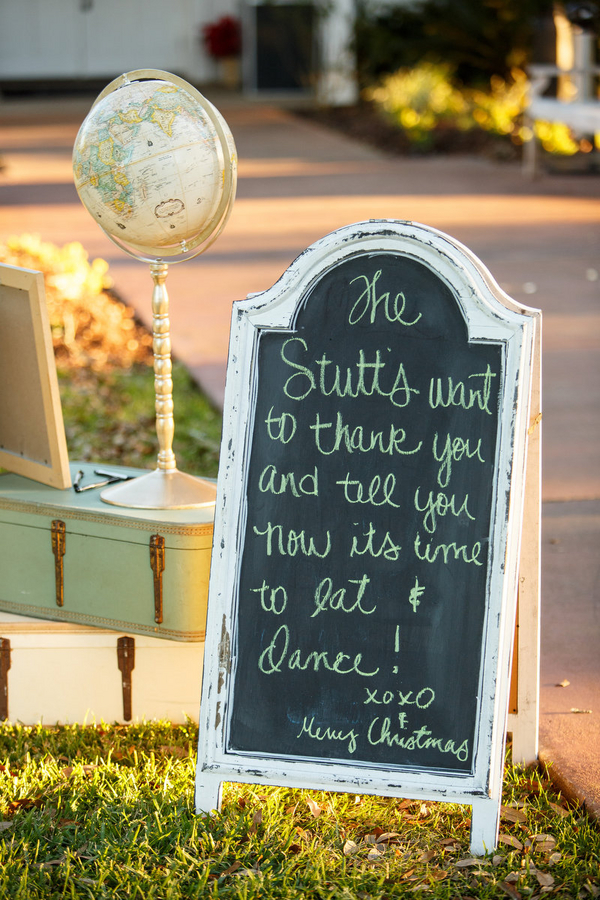 The
Stutt's want
to thank you
and tell you
now its time
to eat &
Dance!
xoxo
&
Merry Christmas